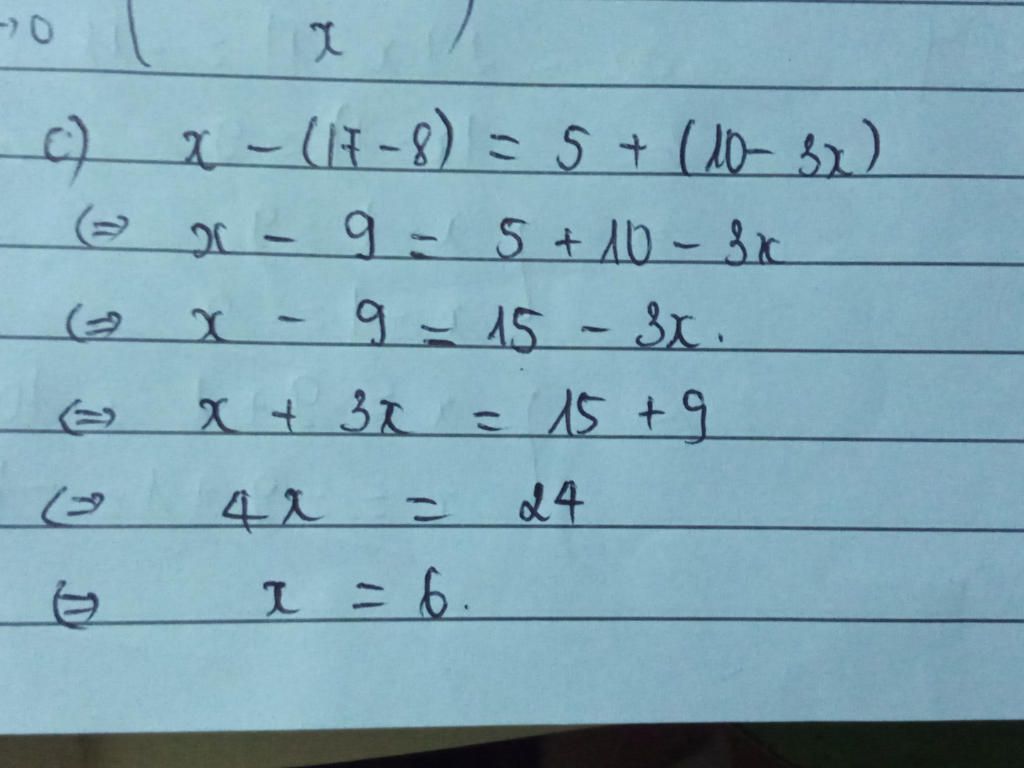 →0 ( x )
c) x - (17 - 8) = 5 + (10 - 3x)
⇔ x - 9 = 5 + 10 - 3x
⇔ x - 9 = 15 - 3x.
⇔ x + 3x = 15 + 9
⇔ 4x = 24
⇔ x = 6.